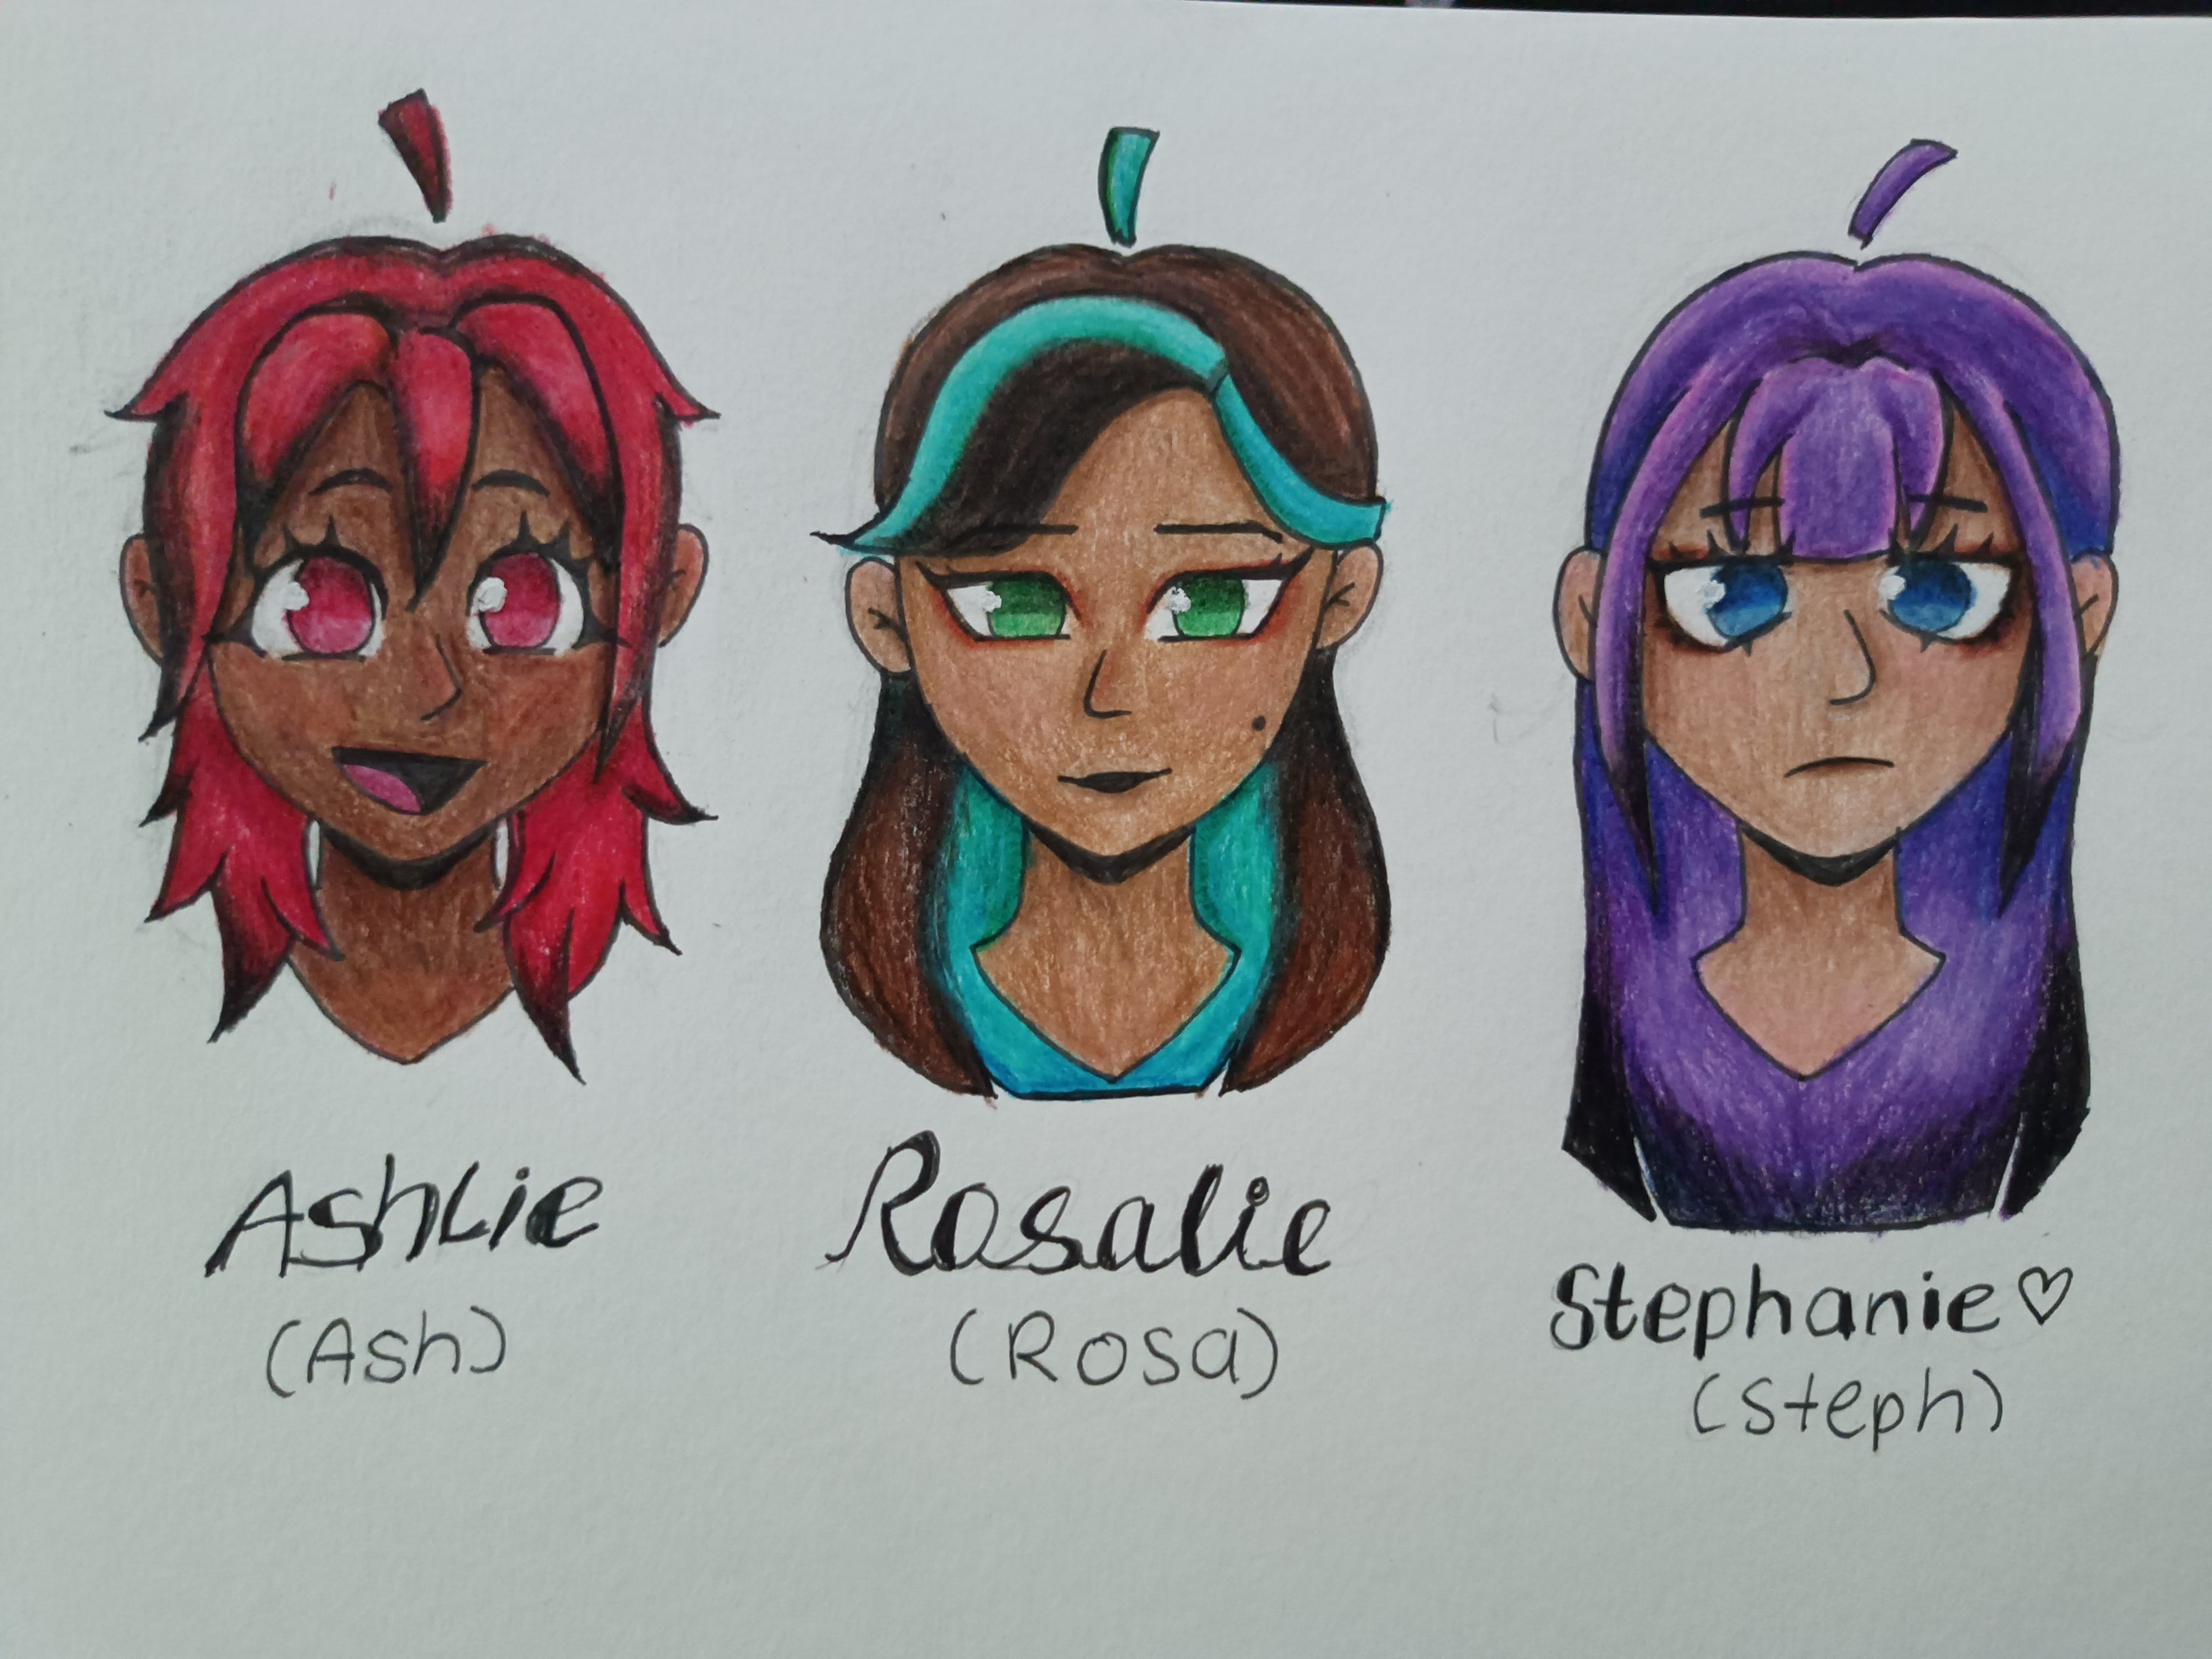 Ashlie
(Ash)
Rosalie
(Rosa)
Stephanie ♡
(Steph)